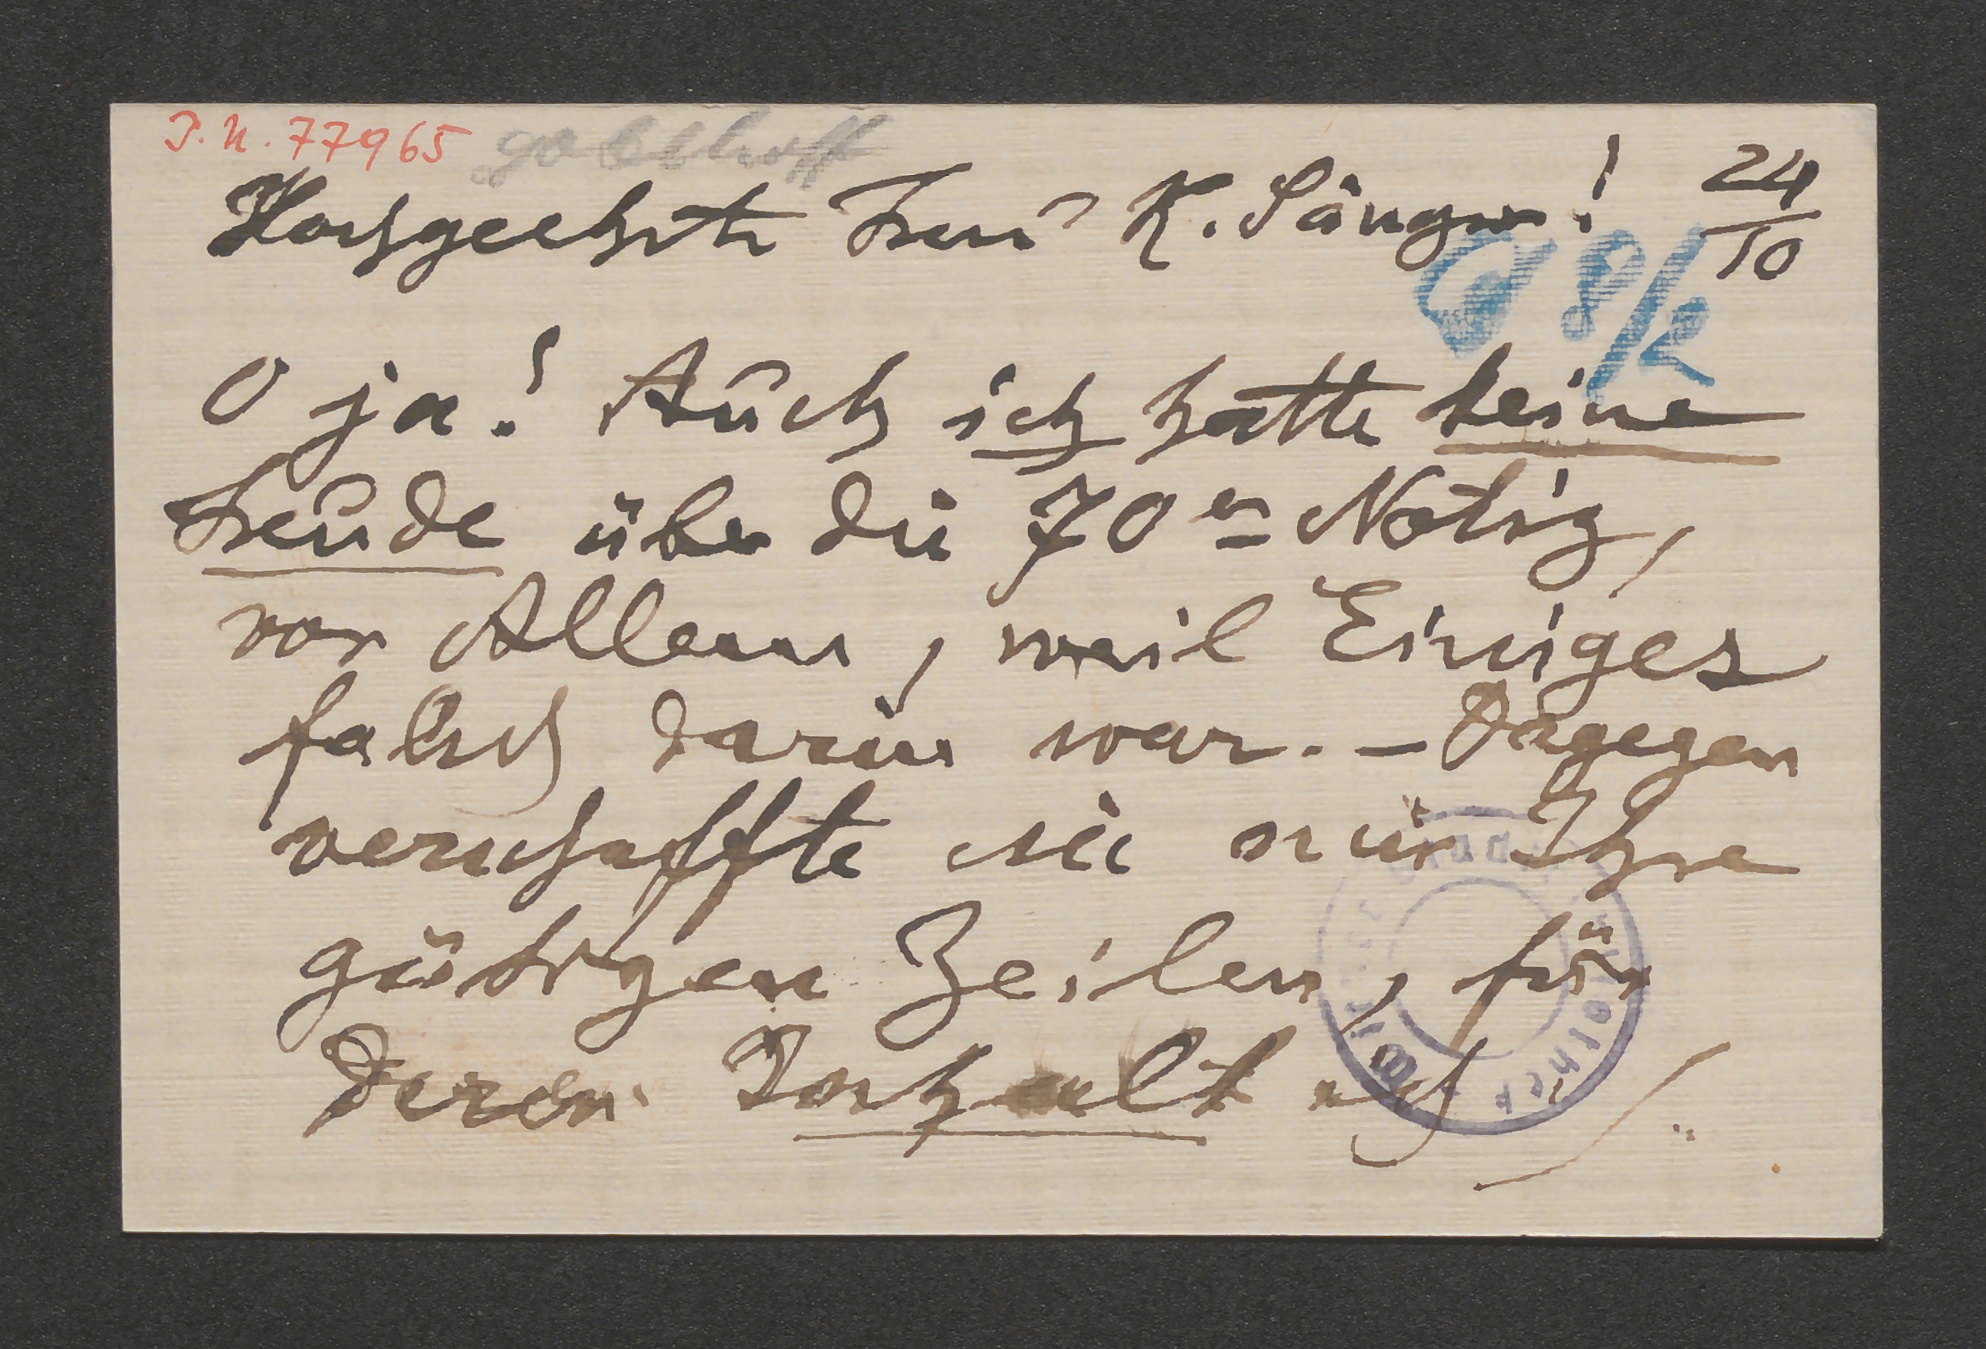 I.N. 77965
24/10
Hochgeehrte Frau K. Sänger!
O ja! Auch ich hatte keine
Freude über die 70er Notiz,
vor Allem, weil Einiges
falsch darin war. – Dagegen
verschaffte sie mir Ihre
gütigen Zeilen, für
deren Inhalt ich